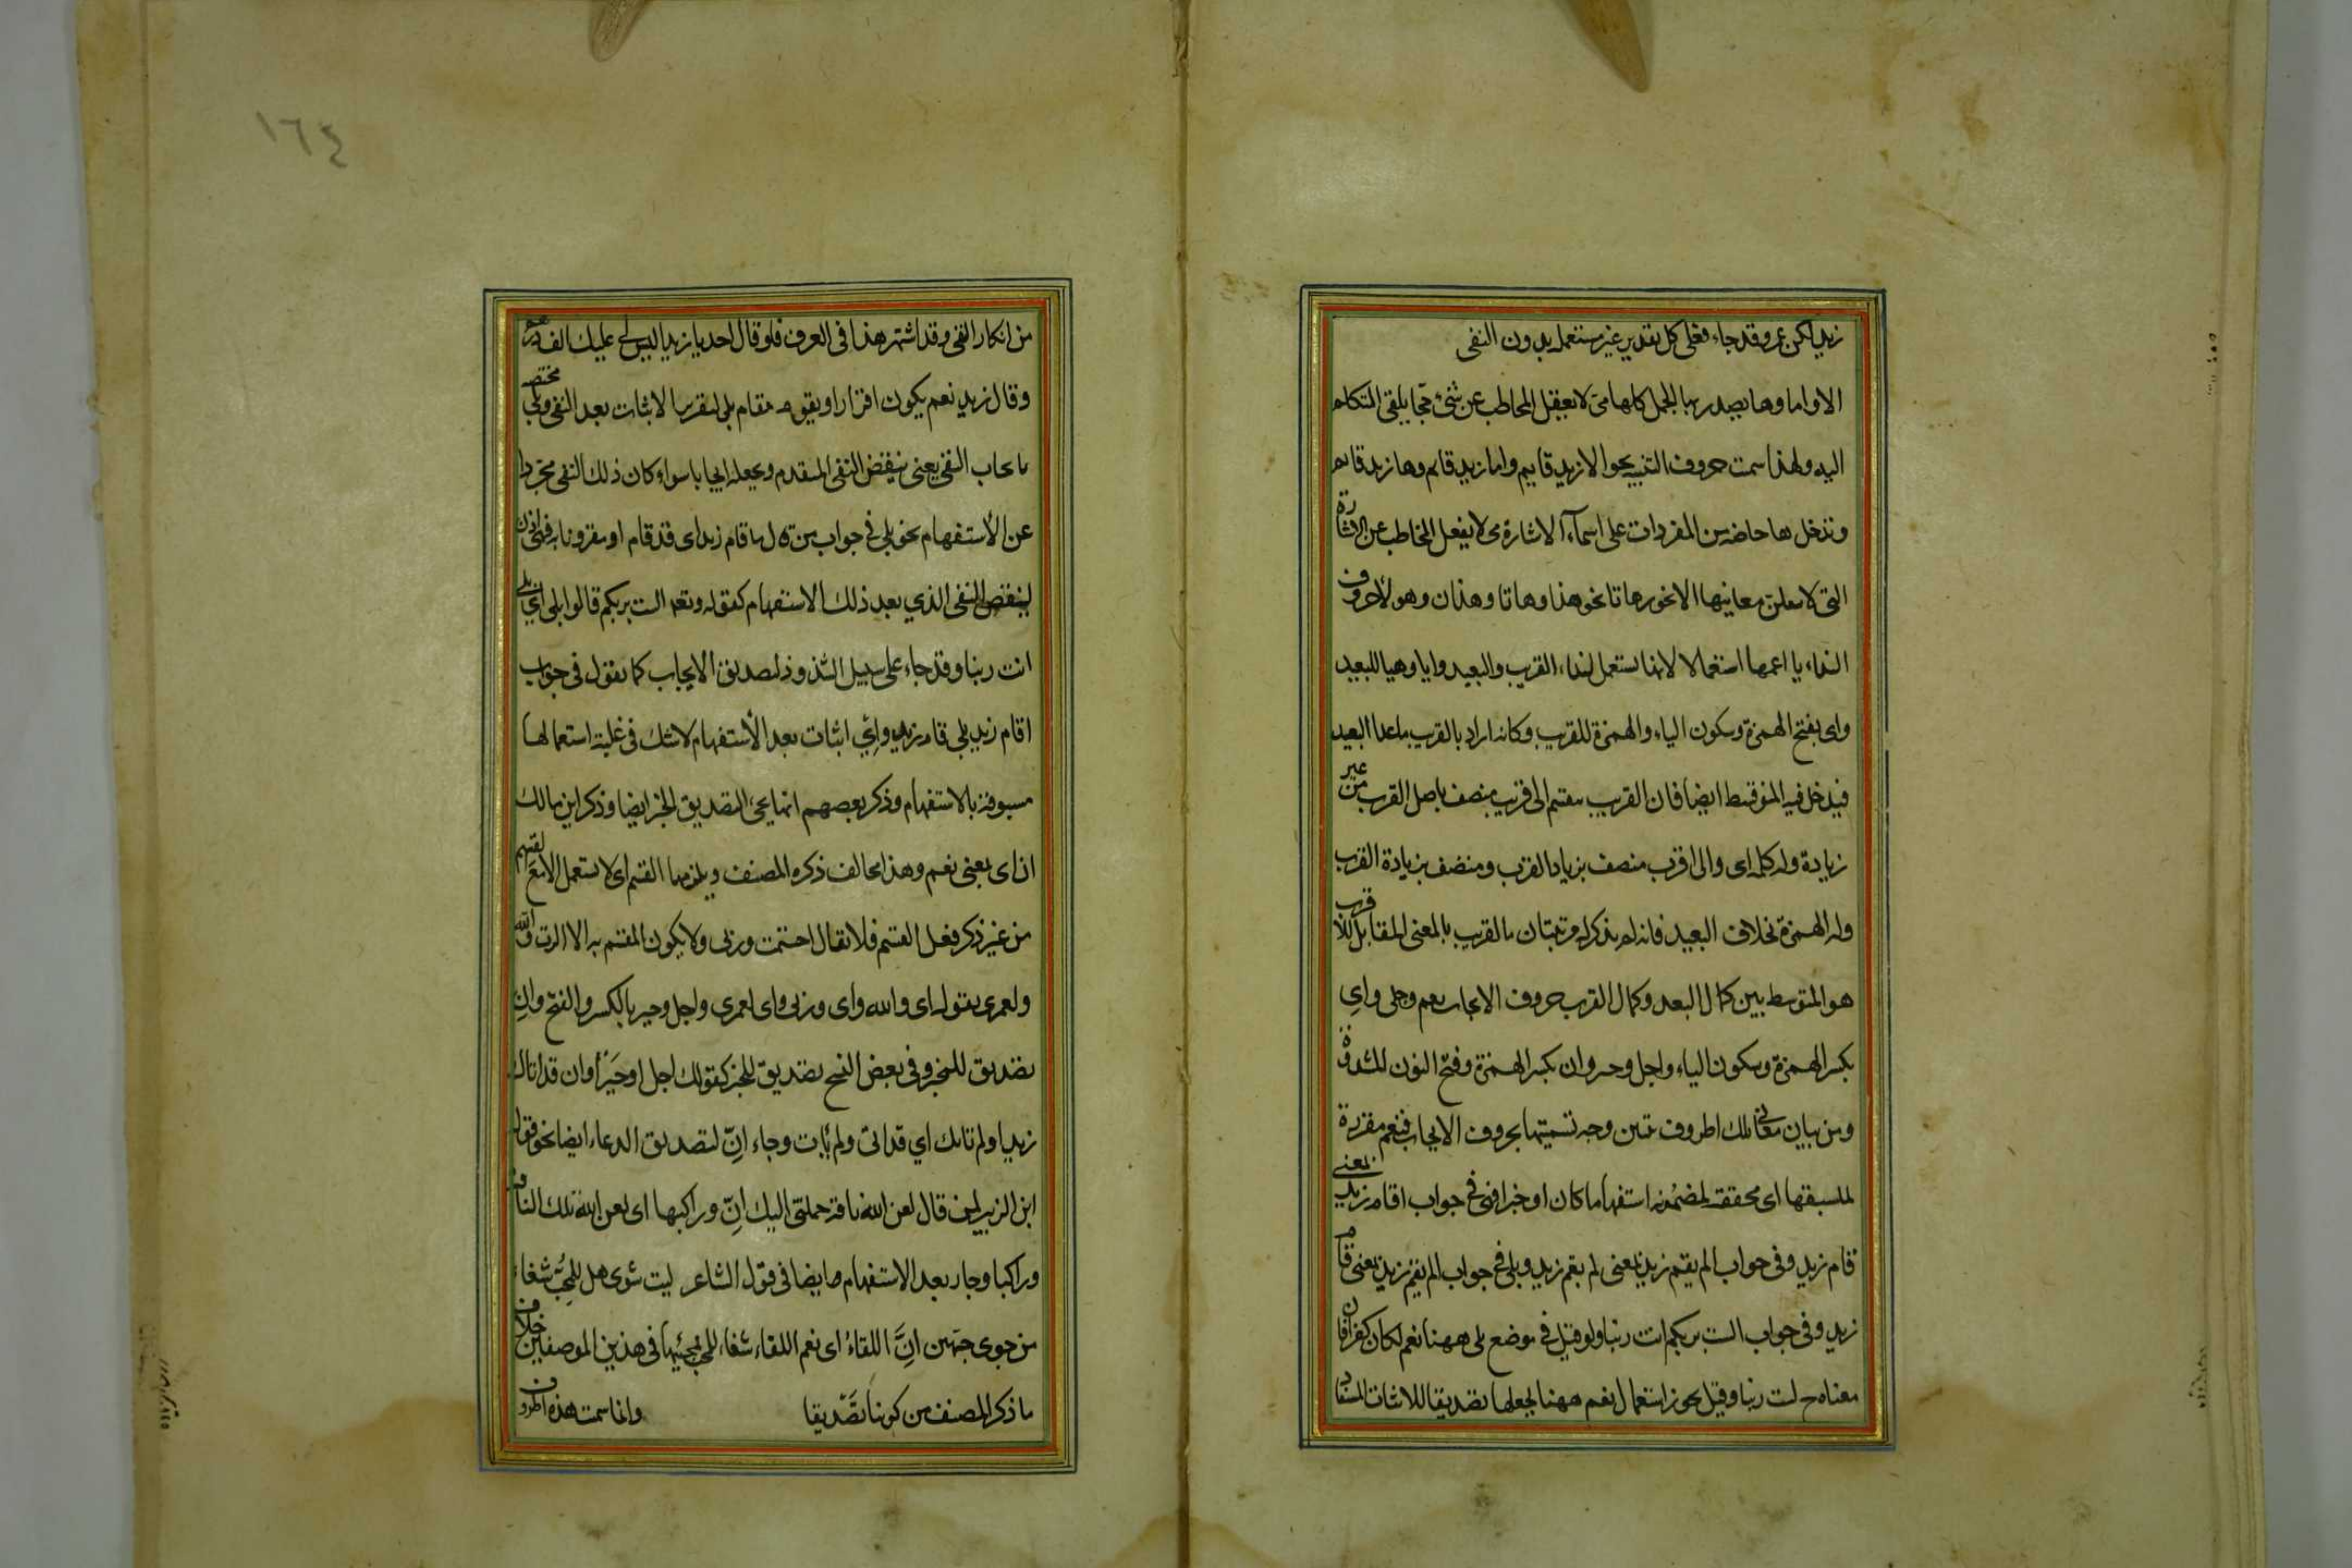 زيد لكن عمرو قد جاء فعلى كل تقدير غير مستعمل بدون النفى
الا واما وها يصدر بها الجمل كلها متى لا يغفل المخاطب عن شئ مما يلقى المتكلم
اليه ولهذا سمت حروف التنبيه نحو الا زيد قايم واما زيد قايم وها زيد قايم
وتدخل ها خاصة من المفردات على اسمآء الاشارة حتى لا يغفل المخاطب عن الاشارة
التى لا يتعلن معانيها الا نحو رها تا نحو هذا وهاتا وهذان وهولاء حروف
النداء يا اعمها استعمالا لانها يستعمل لنداء القريب والبعيد وايا وهيا للبعيد
واى بفتح الهمزة وسكون الياء والهمزة للقريب وكانه اراد بالقريب ما عدا البعيد
فيدخل فيه المتوسط ايضا فان القريب ينقسم الى قريب متصف باصل القرب من غير
زيادة وله كلمة اى والى اقرب متصف بزيادة القرب ومتصف بزيادة القرب
وله الهمزة بخلاف البعيد فانه لم يذكر له مرتبتان بالقريب بالمعنى المقابل للاقرب
هو المتوسط بين كمال البعد وكمال القرب حروف الايجاب نعم وبلى واى
بكسر الهمزة وسكون الياء واجل وجير وان بكسر الهمزة وفتح النون المشددة
ومن بيان معانى تلك الحروف تبين وجه تسميتها بحروف الايجاب فنعم مقررة
لما سبقها اى محققة لمضمونه استفهاما كان او خبرا فهى فى جواب اقام زيد بمعنى
قام زيد وفى جواب الم يقم زيد بمعنى لم يقم زيد وبلى فى جواب الم يقم زيد بمعنى قام
زيد وفى جواب الست بربكم انت ربنا ولو قيل فى موضع بلى ههنا نعم لكان كفرا فان
معناه ح لست ربنا وقيل يجوز استعمال نعم ههنا بجعلها تصديقا للاثبات المستفاد
١٦٤
من انكار النفى وقد اشتهر هذا فى العرف فلو قال احد يا زيد اليس لى عليك الف درهم
وقال زيد نعم يكون اقرارا ويقوم مقام بلى لتقرير الاثبات بعد النفى وبلى مختصة
بايجاب النفى يعنى ينقض النفى المتقدم ويجعله ايجابا سواء كان ذلك النفى مجردا
عن الأستفهام نحو بلى فى جواب من قال ما قام زيد اى قد قام او مقرونا به فهى اذن
لينقص النفى الذي بعد ذلك الاستفهام كقوله وتعه الست بربكم قالوا بلى اى بلى
انت ربنا وقد جاء على سبيل الشذوذ لتصديق الايجاب كما تقول فى جواب
اقام زيد بلى قام زيد وإي اثبات بعد الأستفهام لا شك فى غلبة استعمالها
مسبوقة بالاستفهام وذكر بعضهم انها يجئ لتصديق الخبر ايضا وذكر ابن مالك
ان اى بمعنى نعم وهذا مخالف ذكره المصنف ويلزمها القسم اى لا يستعمل الا مع القسم
من غير ذكر فعل القسم فلا يقال اقسمت وربى ولا يكون المقسم به الا الرب والله
ولعمرى تقول اى والله واى وربى واى لعمرى واجل وجير بالكسر والفتح وان
تصديق للمخبر وفى بعض النسخ تصديق للخبر كقولك اجل او جير او ان قد اتاك
زيد او لم ياتك اي قد اتى ولم يأت وجاء انّ لتصديق الدعاء ايضا نحو قول
ابن الزبير لمن قال لعن الله ناقة حملتنى اليك انّ وراكبها اى لعن الله تلك الناقة
وراكبا وجاء بعد الاستفهام ايضا فى قول الشاعر ليت شعرى هل للمحب شفاء
من جوى حبهن انّ اللقاءُ اى نعم اللقاء شفاء للمحب مجيئها فى هذين الموضعين خلاف
ما ذكر المصنف من كونها تصديقا وانما سمت هذه الحروف